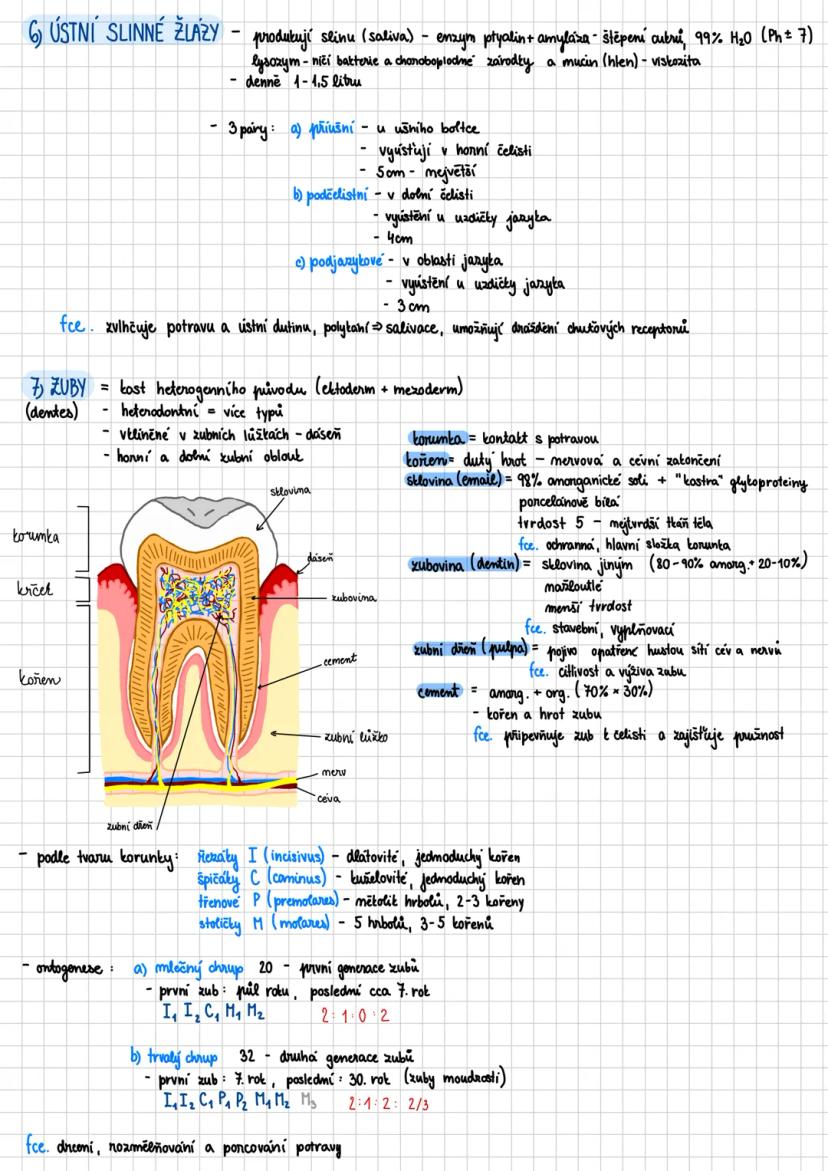 6) ÚSTNÍ SLINNÉ ŽLÁZY - produkují slinu (saliva) - enzym ptyalin + amyláza - štěpení cukrů, 99% H₂O (Ph ± 7)
lysozym - ničí bakterie a choroboplodné zárodky a mucin (hlen) - viskozita
- denně 1-1,5 litru
- 3 páry: a) příušní - u ušního boltce
- vyúsťují v horní čelisti
- 5cm - největší
b) podčelistní - v dolní čelisti
- vyústění u uzdičky jazyka
- 4cm
c) podjazykové - v oblasti jazyka
- vyústění u uzdičky jazyka
- 3 cm
fce. zvlhčuje potravu a ústní dutinu, polykání ⇒ salivace, umožňují dráždění chuťových receptorů
7) ZUBY = kost heterogenního původu (ektoderm + mezoderm)
(dentes) - heterodontní = více typů
- vklíněné v zubních lůžkách - dáseň
- horní a dolní zubní oblouk
korunka = kontakt s potravou
kořen = dutý hrot - nervová a cévní zakončení
sklovina (email) = 98% anorganické soli + "kostra" glykoproteiny
porcelánově bílá
tvrdost 5 - nejtvrdší tkáň těla
fce. ochranná, hlavní složka korunka
zubovina (dentin) = sklovina jiným (80-90% anorg. + 20-10%)
nažloutlé
menší tvrdost
fce. stavební, vyplňovací
zubní dřeň (pulpa) = pojivo opatřené hustou sítí cév a nervů
fce. citlivost a výživa zubu
cement = anorg. + org. (70% × 30%)
- kořen a hrot zubu
fce. připevňuje zub k čelisti a zajišťuje pružnost
sklovina
korunka
dáseň
krček
zubovina
cement
kořen
zubní lůžko
nerv
céva
zubní dřeň
- podle tvaru korunky: řezáky I (incisivus) - dlátovité, jednoduchý kořen
špičáky C (caninus) - kuželovité, jednoduchý kořen
třenové P (premolares) - několik hrbolů, 2-3 kořeny
stoličky M (molares) - 5 hrbolů, 3-5 kořenů
- ontogenese: a) mléčný chrup 20 - první generace zubů
- první zub: půl roku, poslední cca 7. rok
I₁ I₂ C₁ M₁ M₂ 2:1:0:2
b) trvalý chrup 32 - druhá generace zubů
- první zub: 7. rok, poslední: 30. rok (zuby moudrosti)
I₁ I₂ C₁ P₁ P₂ M₁ M₂ M₃ 2:1:2: 2/3
fce. drcení, rozmělňování a porcování potravy